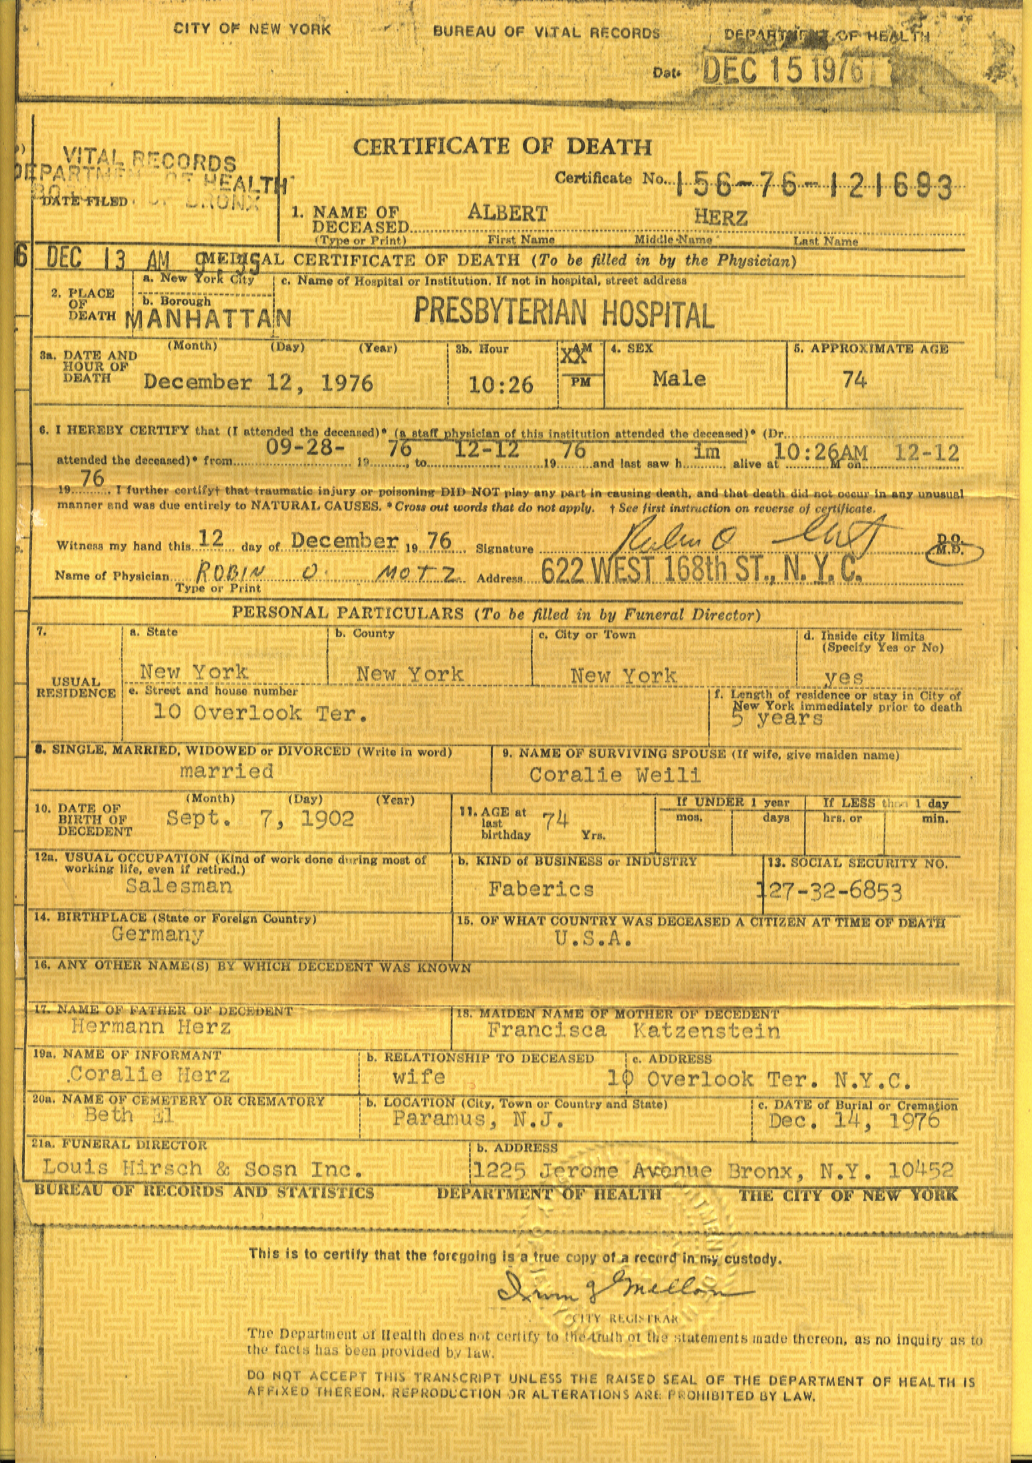 CITY OF NEW YORK BUREAU OF VITAL RECORDS DEPARTMENT OF HEALTH
Date DEC 15 1976
VITAL RECORDS
DEPARTMENT OF HEALTH
BRONX
DATE FILED
CERTIFICATE OF DEATH
Certificate No. 156-76-121693
1. NAME OF DECEASED ALBERT HERZ
(Type or Print) First Name Middle Name Last Name
DEC 13 AM
MEDICAL CERTIFICATE OF DEATH (To be filled in by the Physician)
2. PLACE OF DEATH
a. New York City
b. Borough
MANHATTAN
c. Name of Hospital or Institution. If not in hospital, street address
PRESBYTERIAN HOSPITAL
3a. DATE AND HOUR OF DEATH
(Month) (Day) (Year)
December 12, 1976
3b. Hour
10:26
XX AM
PM
4. SEX
Male
5. APPROXIMATE AGE
74
6. I HEREBY CERTIFY that (I attended the deceased)* (a staff physician of this institution attended the deceased)* (Dr.
attended the deceased)* from 09-28- 1976, to 12-12 1976 and last saw him alive at 10:26AM M on 12-12
1976. I further certify† that traumatic injury or poisoning DID NOT play any part in causing death, and that death did not occur in any unusual
manner and was due entirely to NATURAL CAUSES. *Cross out words that do not apply. † See first instruction on reverse of certificate.
Witness my hand this 12 day of December 1976 Signature D.O. M.D.
Name of Physician ROBIN O. MOTZ Address 622 WEST 168th ST., N.Y.C.
Type or Print
PERSONAL PARTICULARS (To be filled in by Funeral Director)
7. USUAL RESIDENCE
a. State
New York
b. County
New York
c. City or Town
New York
d. Inside city limits (Specify Yes or No)
yes
e. Street and house number
10 Overlook Ter.
f. Length of residence or stay in City of New York immediately prior to death
5 years
8. SINGLE, MARRIED, WIDOWED or DIVORCED (Write in word)
married
9. NAME OF SURVIVING SPOUSE (If wife, give maiden name)
Coralie Weili
10. DATE OF BIRTH OF DECEDENT
(Month) (Day) (Year)
Sept. 7, 1902
11. AGE at last birthday 74 Yrs.
If UNDER 1 year
mos. days
If LESS than 1 day
hrs. or min.
12a. USUAL OCCUPATION (Kind of work done during most of working life, even if retired.)
Salesman
b. KIND of BUSINESS or INDUSTRY
Faberics
13. SOCIAL SECURITY NO.
127-32-6853
14. BIRTHPLACE (State or Foreign Country)
Germany
15. OF WHAT COUNTRY WAS DECEASED A CITIZEN AT TIME OF DEATH
U.S.A.
16. ANY OTHER NAME(S) BY WHICH DECEDENT WAS KNOWN
17. NAME OF FATHER OF DECEDENT
Hermann Herz
18. MAIDEN NAME OF MOTHER OF DECEDENT
Francisca Katzenstein
19a. NAME OF INFORMANT
Coralie Herz
b. RELATIONSHIP TO DECEASED
wife
c. ADDRESS
10 Overlook Ter. N.Y.C.
20a. NAME OF CEMETERY OR CREMATORY
Beth El
b. LOCATION (City, Town or Country and State)
Paramus, N.J.
c. DATE of Burial or Cremation
Dec. 14, 1976
21a. FUNERAL DIRECTOR
Louis Hirsch & Sosn Inc.
b. ADDRESS
1225 Jerome Avenue Bronx, N.Y. 10452
BUREAU OF RECORDS AND STATISTICS DEPARTMENT OF HEALTH THE CITY OF NEW YORK
This is to certify that the foregoing is a true copy of a record in my custody.
CITY REGISTRAR
The Department of Health does not certify to the truth of the statements made thereon, as no inquiry as to
the facts has been provided by law.
DO NOT ACCEPT THIS TRANSCRIPT UNLESS THE RAISED SEAL OF THE DEPARTMENT OF HEALTH IS
AFFIXED THEREON. REPRODUCTION OR ALTERATIONS ARE PROHIBITED BY LAW.